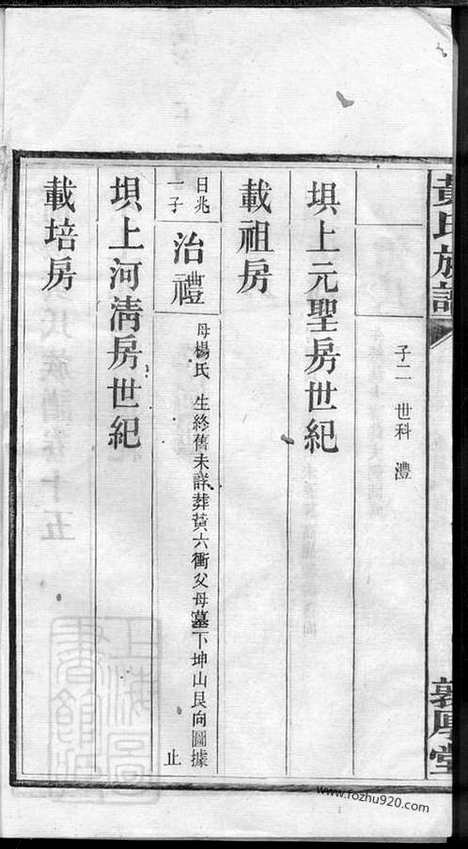 黃氏族譜
敦厚堂
子二 世科 澧
垻上元聖房世紀
載祖房
日兆
一子
治禮
母楊氏 生終舊未詳葬黃六衝父母墓下坤山艮向圖據
止
垻上河清房世紀
載培房
www.fozhu920.com